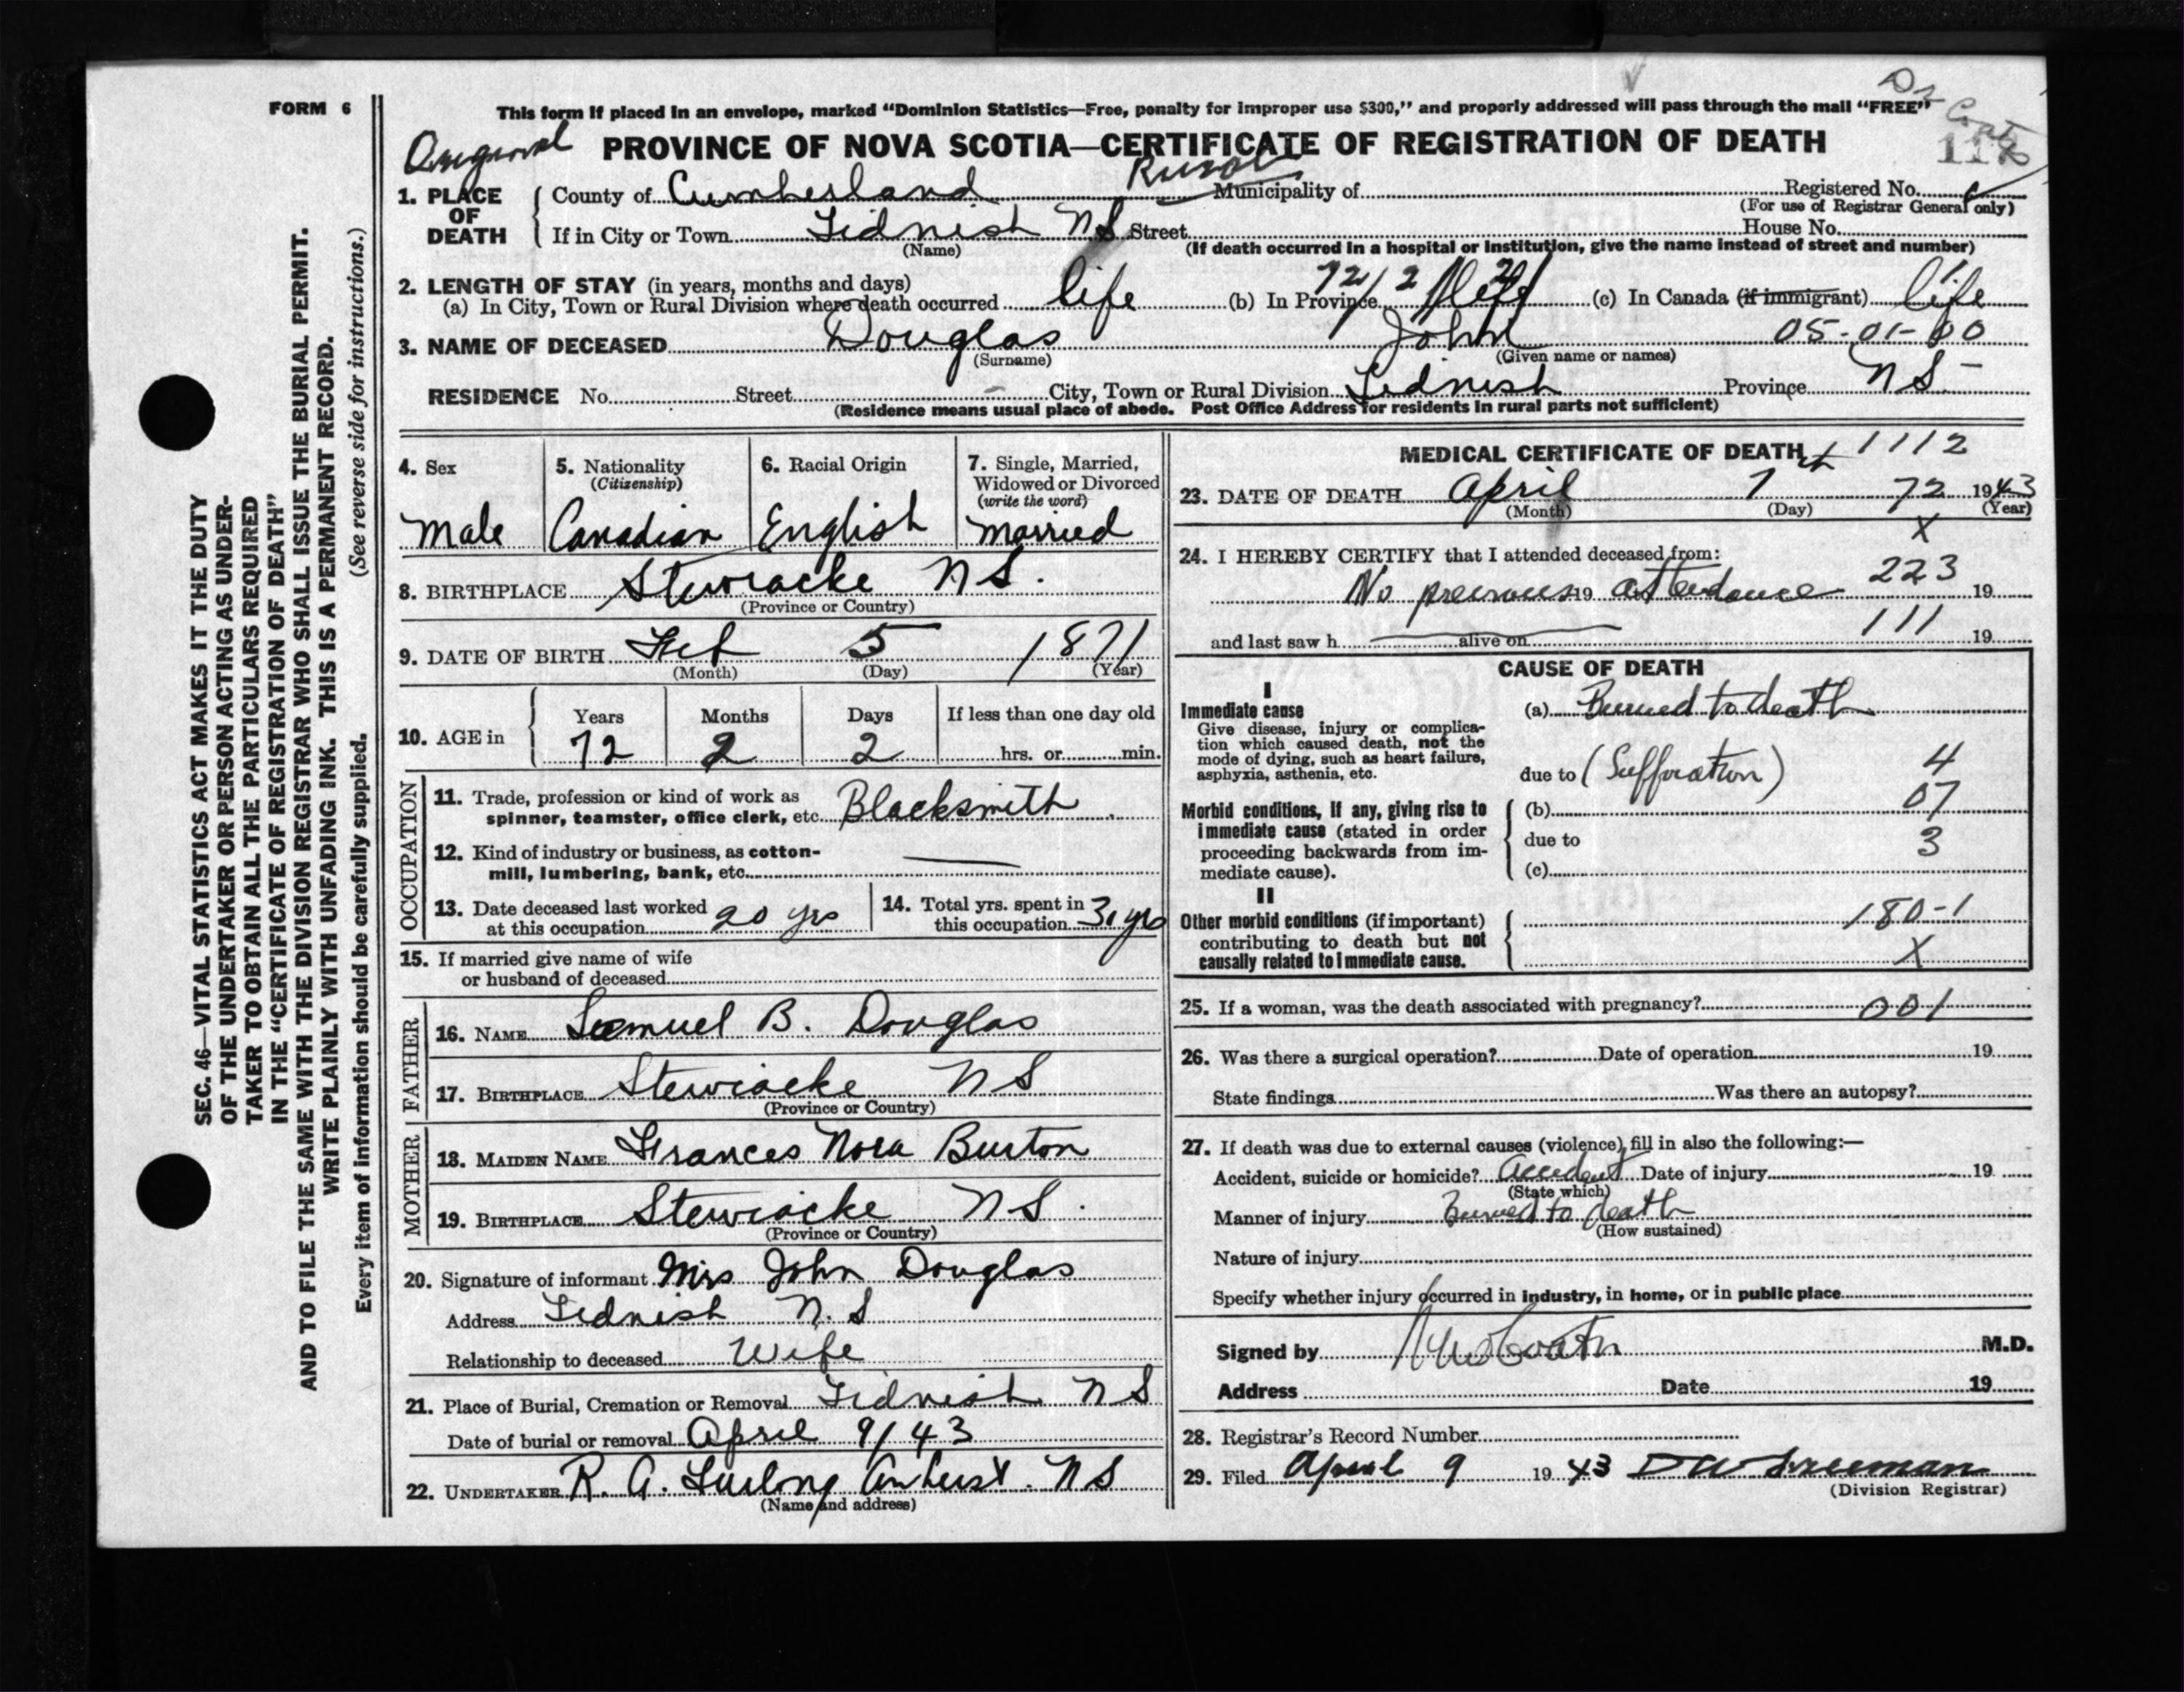 FORM 6
This form if placed in an envelope, marked “Dominion Statistics—Free, penalty for improper use $300,” and properly addressed will pass through the mail “FREE”
PROVINCE OF NOVA SCOTIA—CERTIFICATE OF REGISTRATION OF DEATH
Dr
118
1. PLACE OF DEATH
County of Cumberland Rural Municipality of Registered No.
(For use of Registrar General only)
If in City or Town Tidnish NS Street House No.
(Name) (If death occurred in a hospital or institution, give the name instead of street and number)
2. LENGTH OF STAY (in years, months and days) 72/2
(a) In City, Town or Rural Division where death occurred life (b) In Province life (c) In Canada (if immigrant) life
3. NAME OF DECEASED Douglas John 05-01-00
(Surname) (Given name or names)
RESIDENCE No. Street City, Town or Rural Division Tidnish Province NS
(Residence means usual place of abode. Post Office Address for residents in rural parts not sufficient)
SEC. 46—VITAL STATISTICS ACT MAKES IT THE DUTY
OF THE UNDERTAKER OR PERSON ACTING AS UNDER-
TAKER TO OBTAIN ALL THE PARTICULARS REQUIRED
IN THE “CERTIFICATE OF REGISTRATION OF DEATH”
AND TO FILE THE SAME WITH THE DIVISION REGISTRAR WHO SHALL ISSUE THE BURIAL PERMIT.
WRITE PLAINLY WITH UNFADING INK. THIS IS A PERMANENT RECORD.
Every item of information should be carefully supplied. (See reverse side for instructions.)
4. Sex
Male
5. Nationality
(Citizenship)
Canadian
6. Racial Origin
English
7. Single, Married,
Widowed or Divorced
(write the word)
Married
8. BIRTHPLACE Stewiacke NS.
(Province or Country)
9. DATE OF BIRTH Feb 5 1871
(Month) (Day) (Year)
10. AGE in
Years Months Days If less than one day old
72 2 2 hrs. or min.
OCCUPATION
11. Trade, profession or kind of work as
spinner, teamster, office clerk, etc. Blacksmith
12. Kind of industry or business, as cotton-
mill, lumbering, bank, etc.
13. Date deceased last worked
at this occupation 20 yrs
14. Total yrs. spent in
this occupation 30 yrs
15. If married give name of wife
or husband of deceased
FATHER
16. NAME Samuel B. Douglas
17. BIRTHPLACE Stewiacke NS
(Province or Country)
MOTHER
18. MAIDEN NAME Frances Nora Burton
19. BIRTHPLACE Stewiacke NS.
(Province or Country)
20. Signature of informant Mrs John Douglas
Address Tidnish N.S
Relationship to deceased Wife
21. Place of Burial, Cremation or Removal Tidnish NS
Date of burial or removal April 9/43
22. UNDERTAKER R. A. Furlong Amherst. NS
(Name and address)
MEDICAL CERTIFICATE OF DEATH 1112
23. DATE OF DEATH April 7th 72 1943
(Month) (Day) (Year)
X
24. I HEREBY CERTIFY that I attended deceased from:
No previous 19 attendance 223 19
and last saw h alive on 111 19
CAUSE OF DEATH
I
Immediate cause
Give disease, injury or complica-
tion which caused death, not the
mode of dying, such as heart failure,
asphyxia, asthenia, etc.
(a) Burned to death
due to (Suffocation) 4
Morbid conditions, if any, giving rise to
immediate cause (stated in order
proceeding backwards from im-
mediate cause).
(b) 07
due to 3
(c)
II
Other morbid conditions (if important)
contributing to death but not
causally related to immediate cause.
180-1
X
25. If a woman, was the death associated with pregnancy? 001
26. Was there a surgical operation? Date of operation 19
State findings Was there an autopsy?
27. If death was due to external causes (violence) fill in also the following:—
Accident, suicide or homicide? Accident Date of injury 19
(State which)
Manner of injury Burned to death
(How sustained)
Nature of injury
Specify whether injury occurred in industry, in home, or in public place
Signed by M.D.
Address Date 19
28. Registrar's Record Number
29. Filed April 9 1943 D W Freeman
(Division Registrar)